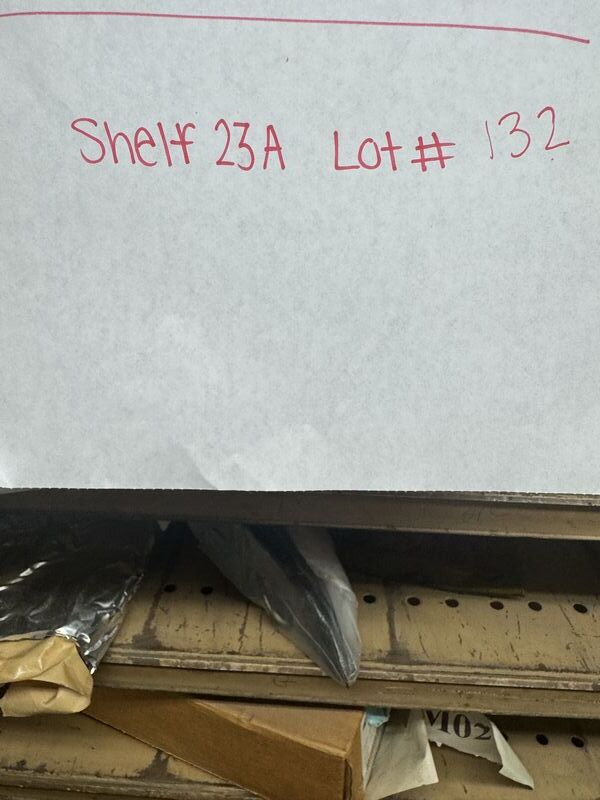 Shelf 23A Lot# 132
M02